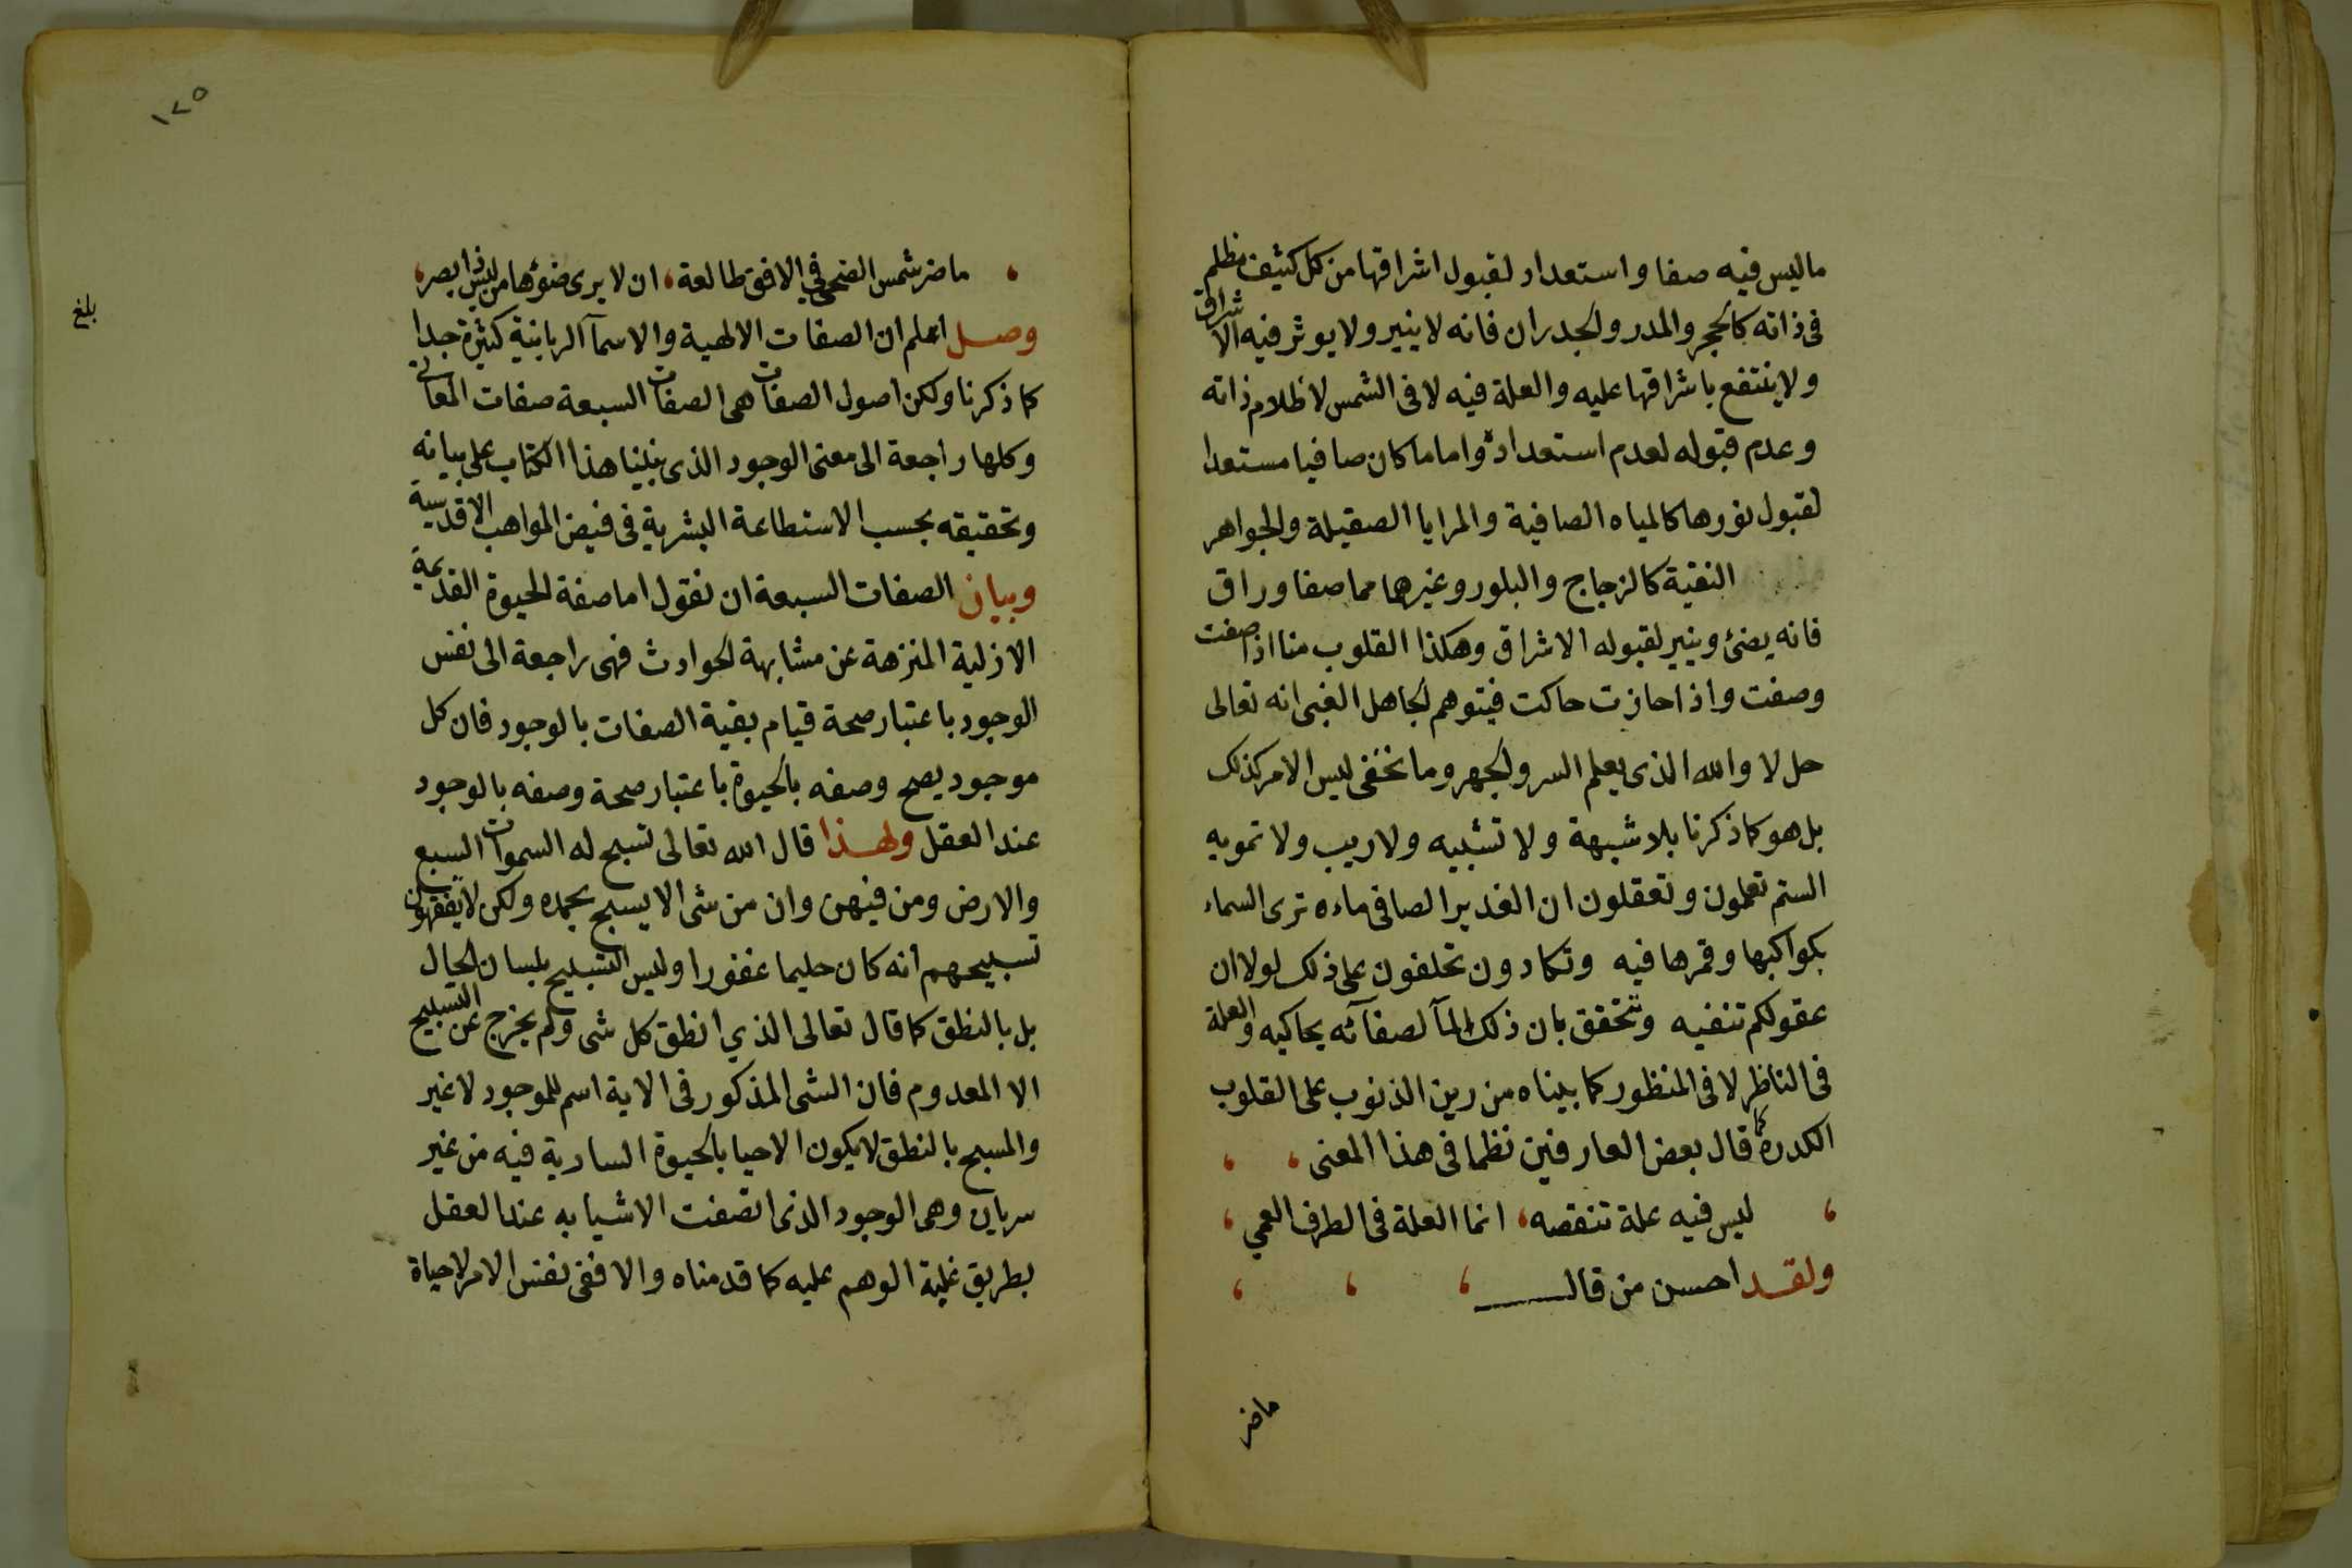 ماليس فيه صفا واستعداد لقبول اشراقها من كل كثيف مظلم
فى ذاته كالحجر والمدر والجدران فانه لا ينير ولا يوثر فيه الاشراق
ولا ينتفع باشراقها عليه والعلة فيه لا فى الشمس لاظلام ذاته
وعدم قبوله لعدم استعداده واما ما كان صافيا مستعدا
لقبول نورها كالمياه الصافية والمرايا الصقيلة والجواهر
النقية كالزجاج والبلور وغيرها مما صفا وراق
فانه يضئ وينير لقبوله الاشراق وهكذا القلوب منا اذا صفت
وصفت واذا حازت حاكت فيتوهم الجاهل الغبى انه تعالى
حل لا والله الذى يعلم السر والجهر وما يخفى ليس الامر كذلك
بل هو كما ذكرنا بلا شبهة ولا تشبيه ولا ريب ولا تمويه
الستم تعلمون وتعقلون ان الغدير الصافى ماءه ترى السماء
بكواكبها وقمرها فيه وتكادون تحلفون على ذلك لولا ان
عقولكم تنفيه وتتحقق بان ذلك المآ لصفآئه يحاكيه والعلة
فى الناظر لا فى المنظور كما بيناه من رين الذنوب على القلوب
الكدرة كما قال بعض العارفين نظما فى هذا المعنى ،   ،
،   ليس فيه علة تنقصه ، انما العلة فى الطرف العمي ،
ولقد احسن من قال ،   ،   ،
ماضر
١٧٥
، ماضر شمس الضحى في الافق طالعة ، ان لا يرى ضوئها من ليس ذا بصر ،
بلغ
وصل اعلم ان الصفات الالهية والاسمآ الربانية كثيرة جدا
كما ذكرنا ولكن اصول الصفات هى الصفات السبعة صفات المعانى
وكلها راجعة الى معنى الوجود الذى بنينا هذا الكتاب على بيانه
وتحقيقه بحسب الاستطاعة البشرية فى فيض المواهب الاقدسية
وبيان الصفات السبعة ان نقول اما صفة الحيوة القديمة
الازلية المنزهة عن مشابهة الحوادث فهى راجعة الى نفس
الوجود باعتبار صحة قيام بقية الصفات بالوجود فان كل
موجود يصح وصفه بالحيوة باعتبار صحة وصفه بالوجود
عند العقل ولهذا قال الله تعالى تسبح له السموات السبع
والارض ومن فيهن وان من شى الا يسبح بحمده ولكن لا يفقهون
تسبيحهم انه كان حليما غفورا وليس التسبيح بلسان الحال
بل بالنطق كما قال تعالى الذي انطق كل شى ولم يخرج عن التسبيح
الا المعدوم فان الشى المذكور فى الاية اسم للموجود لا غير
والمسبح بالنطق لا يكون الا حيا بالحيوة السارية فيه من غير
سريان وهى الوجود الذى اتصفت الاشيا به عند العقل
بطريق غلبة الوهم عليه كما قدمناه والا ففى نفس الامر لا حياة